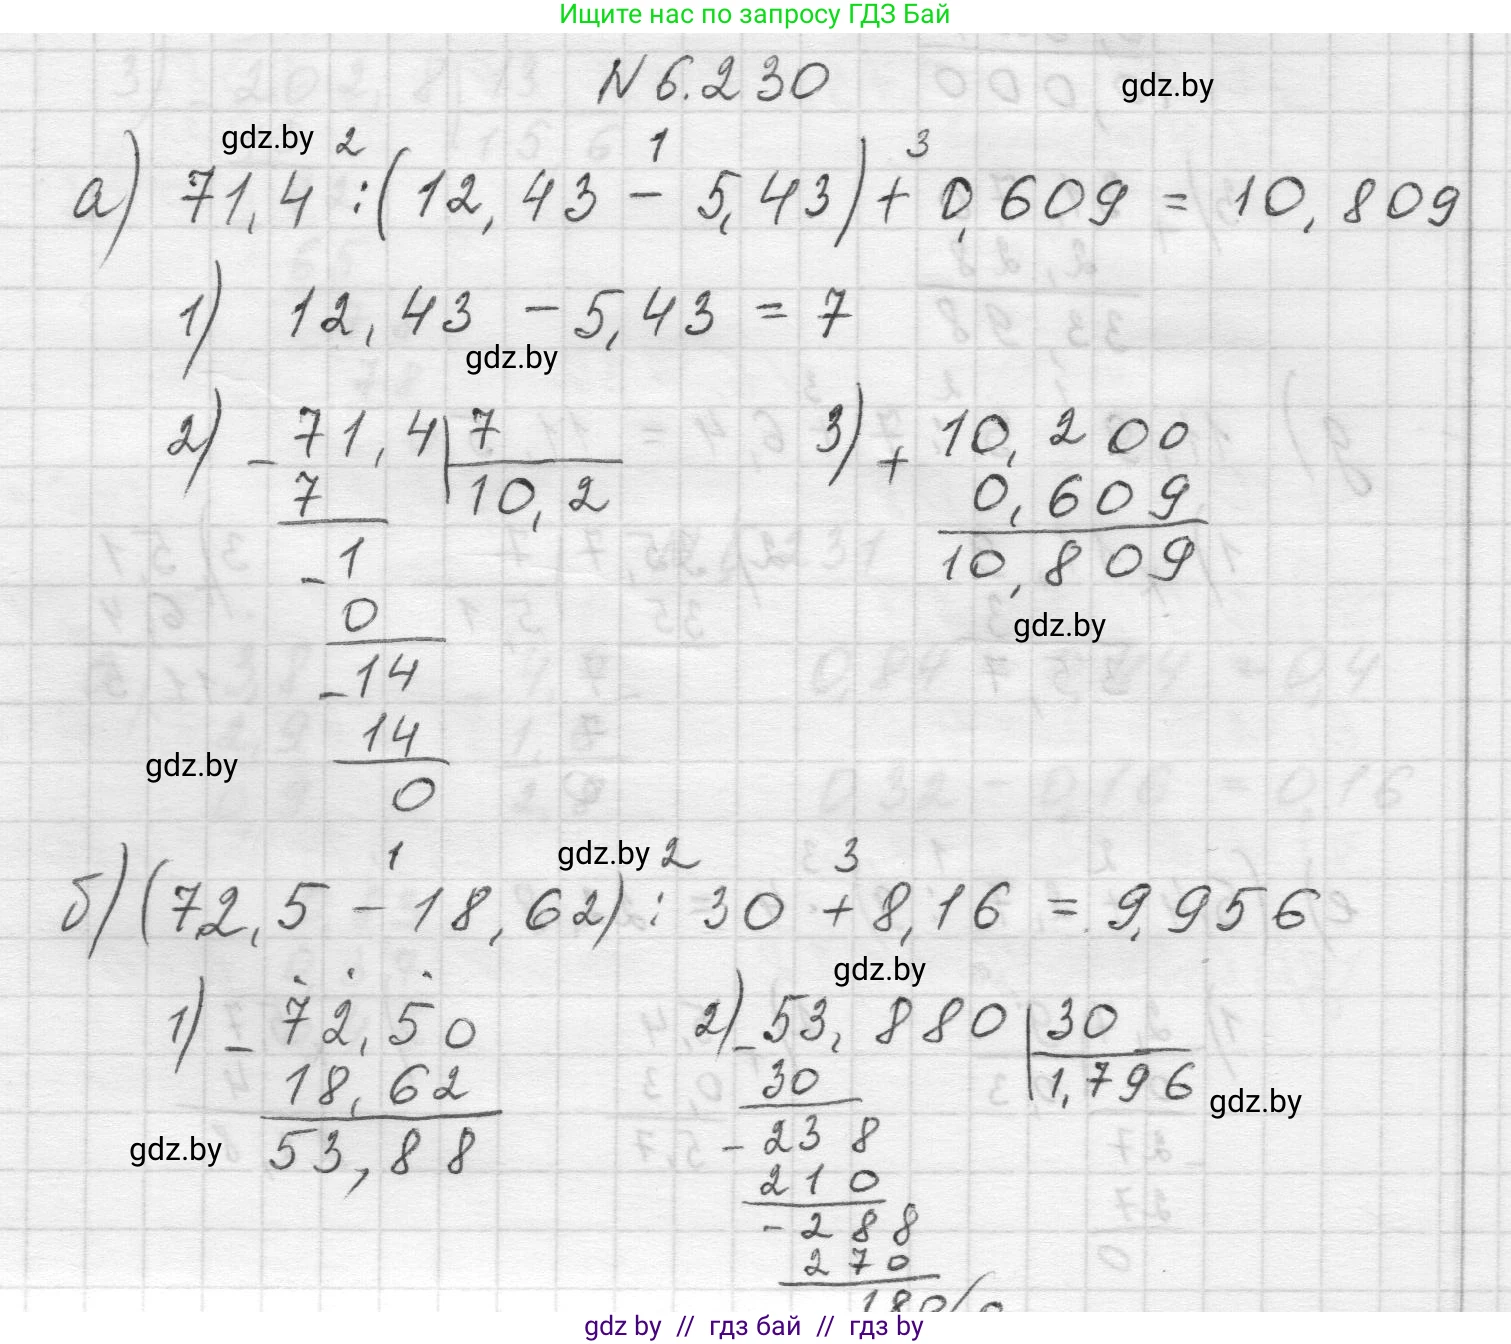 Ищите нас по запросу ГДЗ Бай
N 6.230
gdz.by
gdz.by
2 1 3
а) 71,4 :(12,43 − 5,43) + 0,609 = 10,809
1) 12,43 − 5,43 = 7
gdz.by
2) − 71,4 | 7
7 10,2
− 1
0
− 14
14
0
3) + 10,200
0,609
10,809
gdz.by
gdz.by
1 gdz.by 2 3
б) (72,5 − 18,62) : 30 + 8,16 = 9,956
gdz.by
1) − 72,50
18,62
53,88
gdz.by
2) − 53,880 | 30
30 1,796
gdz.by
− 238
210
− 288
270
180
gdz by // гдз бай // гдз by